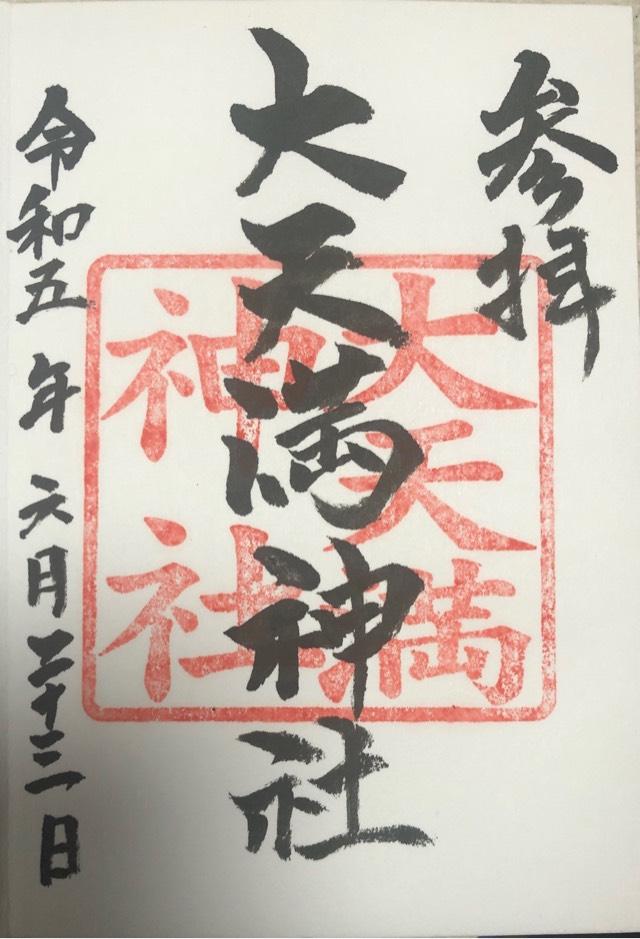 参拝
大天満神社
大天満
神社
令和五年六月二十三日